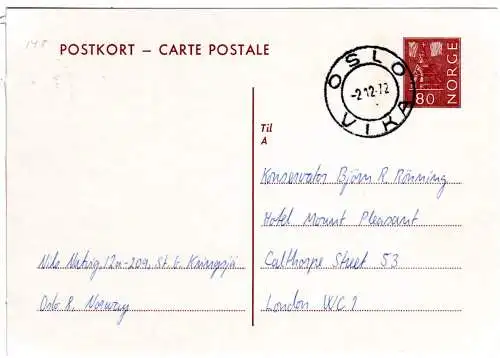 148
POSTKORT – CARTE POSTALE
NORGE
80
OSLO
-2.12.72
VIKA
Til
A
Konservator Björn R. Rönning
Hotel Mount Pleasant
Calthorpe Street 53
London WC 1
Nils Nativig, 12a-209, St. b. Kringsjå
Oslo 8, Norway